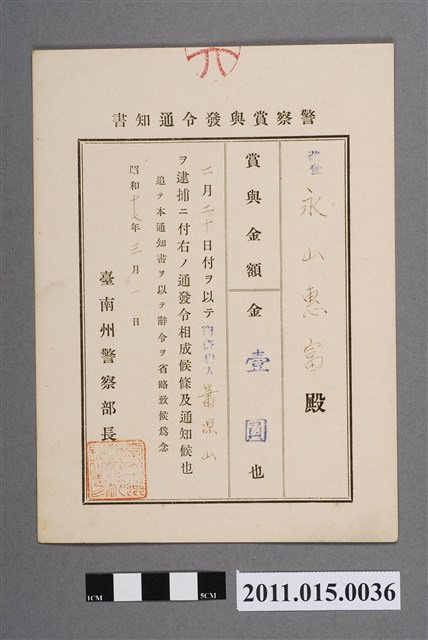 警察賞與發令通知書
永山惠富殿
賞與金額 金壹圓也
二月二十日付ヲ以テ 人蕭深山
ヲ逮捕ニ付右ノ通發令相成候條及通知候也
追テ本通知書ヲ以テ辭令ヲ省略致候爲念
昭和十七年三月一日
臺南州警察部長
1CM
5CM
2011.015.0036